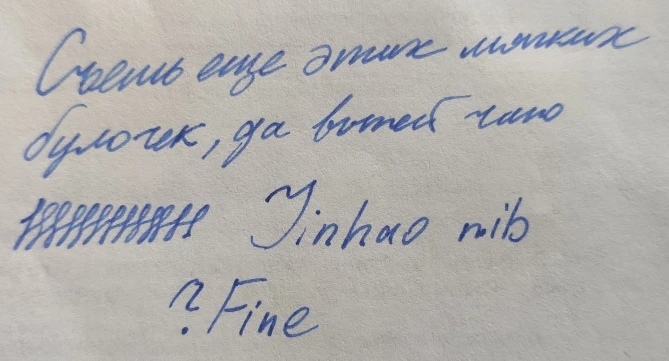 Съешь еще этих мягких
булочек, да выпей чаю
Jinhao nib
? Fine